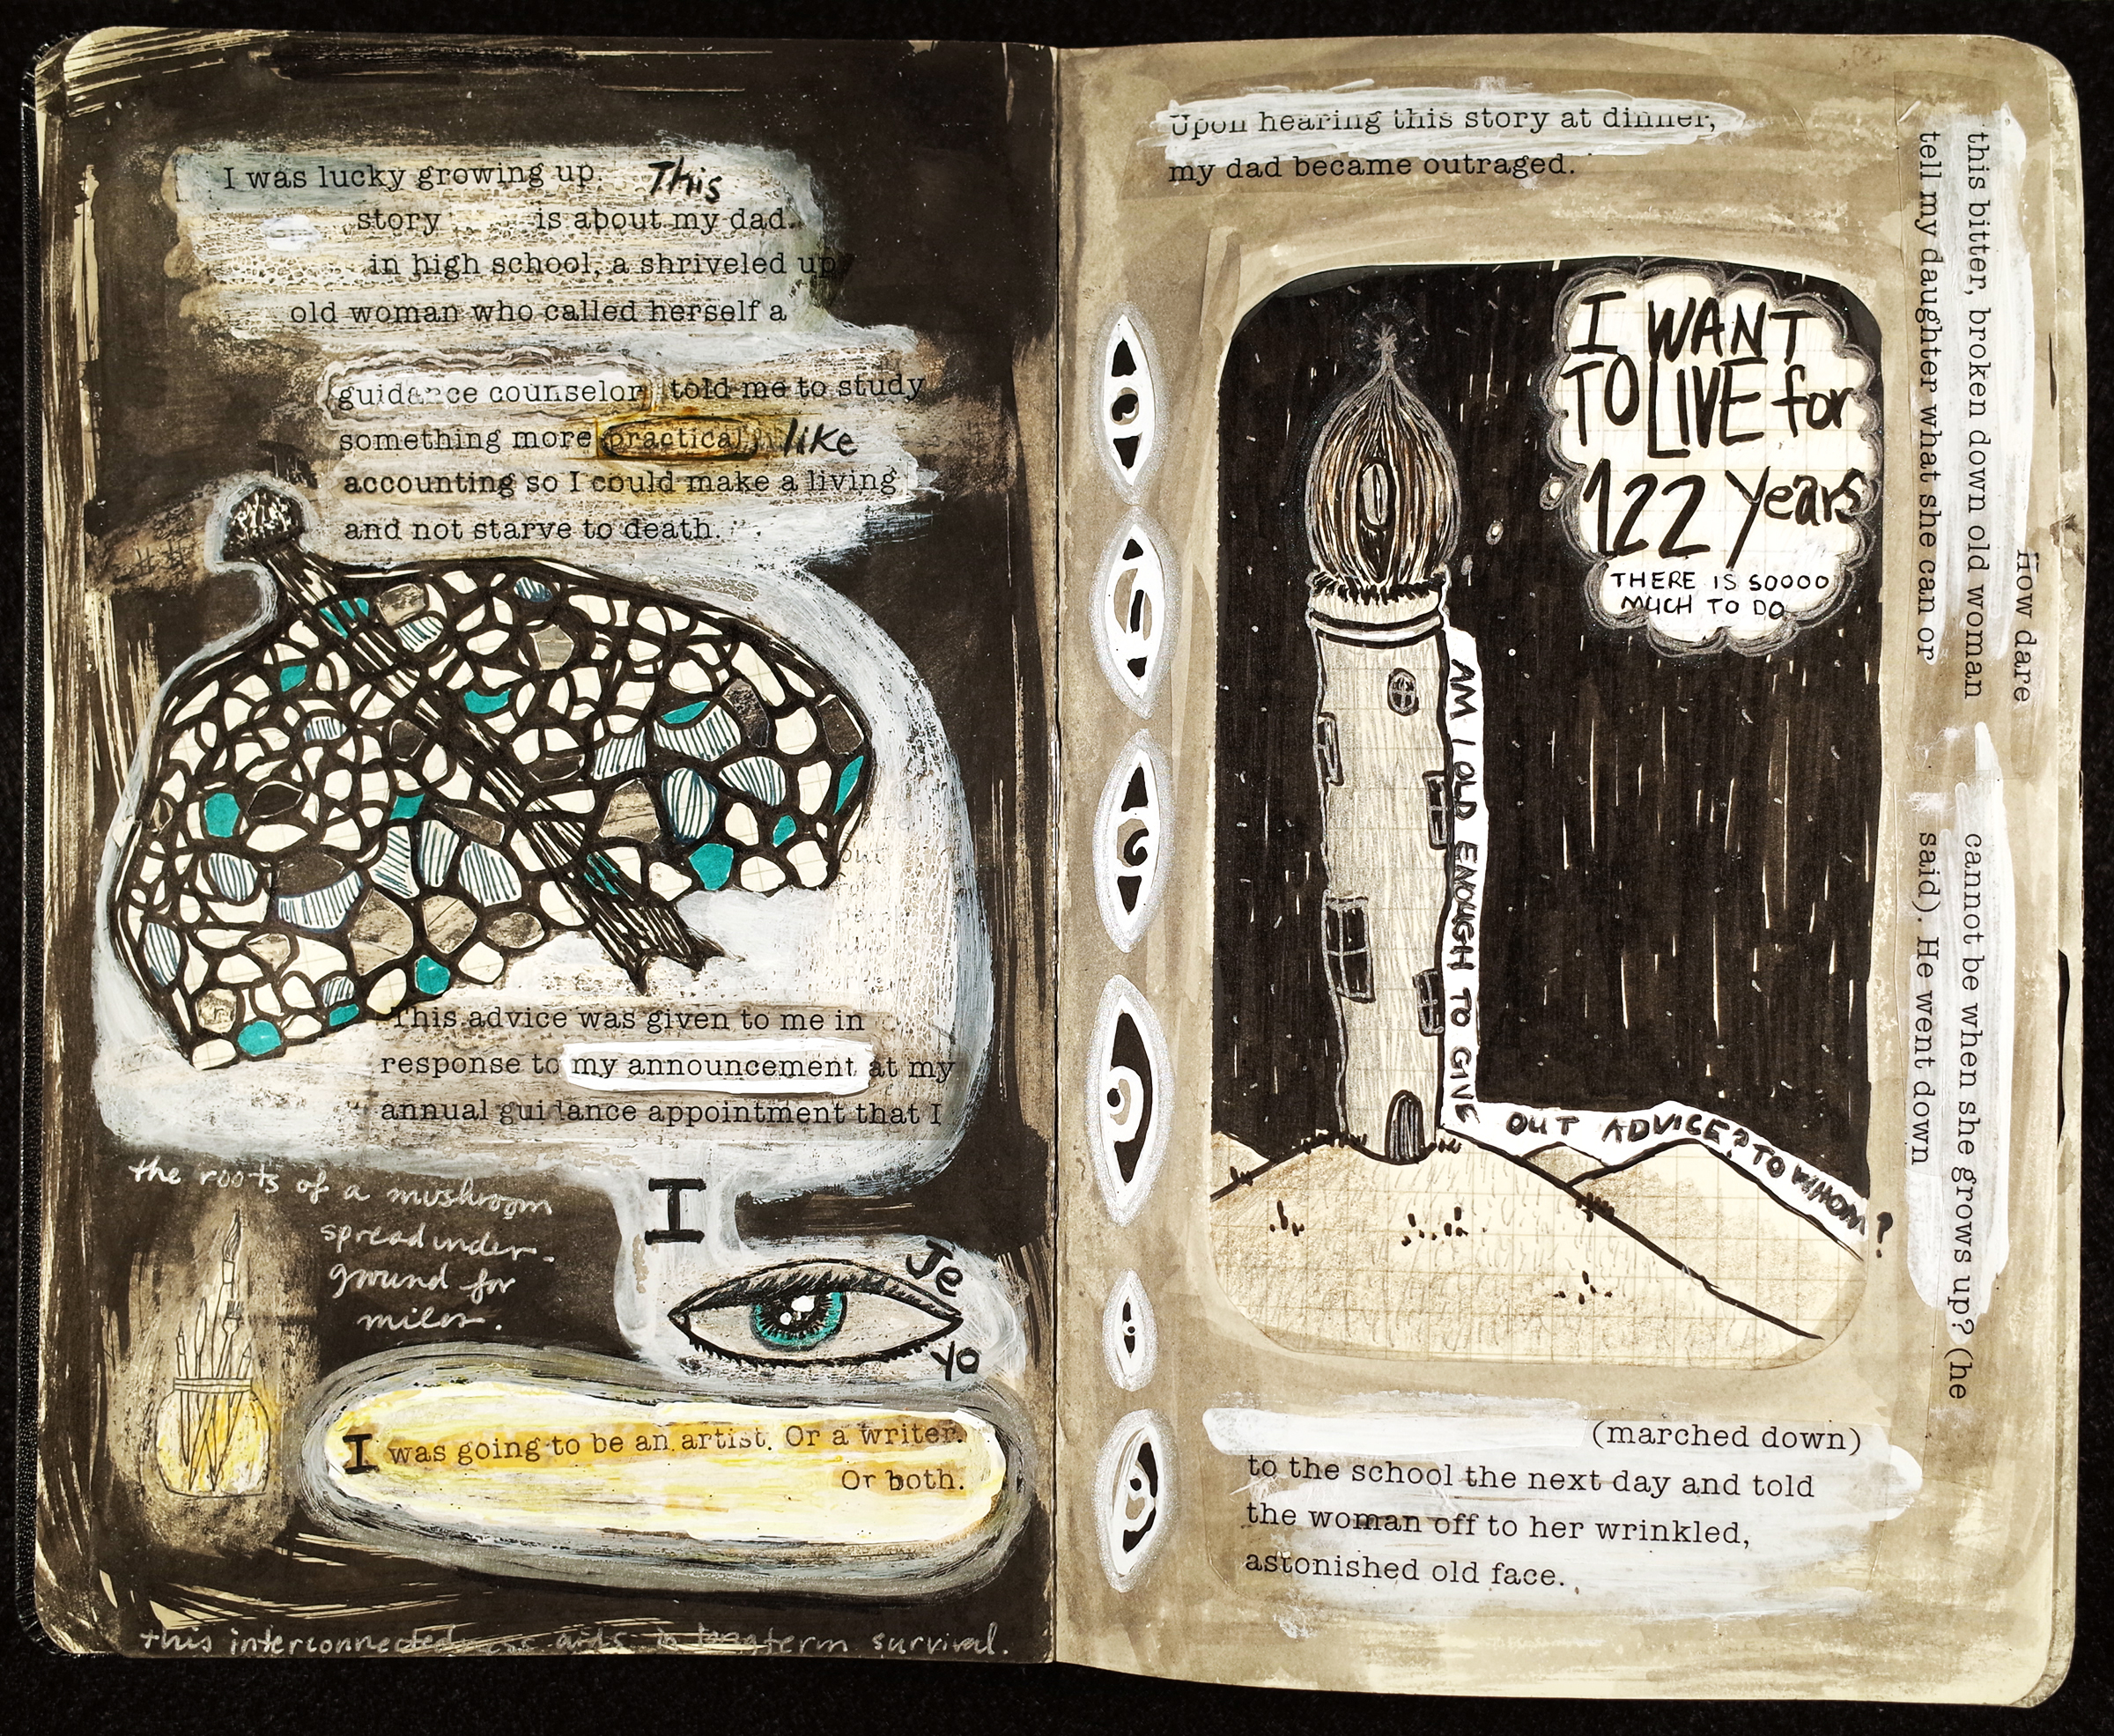 I was lucky growing up. This
story is about my dad.
in high school, a shriveled up
old woman who called herself a
guidance counselor told me to study
something more practical like
accounting so I could make a living
and not starve to death.
This advice was given to me in
response to my announcement at my
annual guidance appointment that I
I
Je
yo
the roots of a mushroom
spread under-
ground for
miles.
I was going to be an artist. Or a writer.
Or both.
this interconnectedness aids in longterm survival.
Upon hearing this story at dinner,
my dad became outraged.
I WANT
TO LIVE for
122 Years
THERE IS SOOOO
MUCH TO DO
AM I OLD ENOUGH TO GIVE OUT ADVICE? TO WHOM?
How dare
this bitter, broken down old woman
tell my daughter what she can or
cannot be when she grows up? (he
said). He went down
(marched down)
to the school the next day and told
the woman off to her wrinkled,
astonished old face.